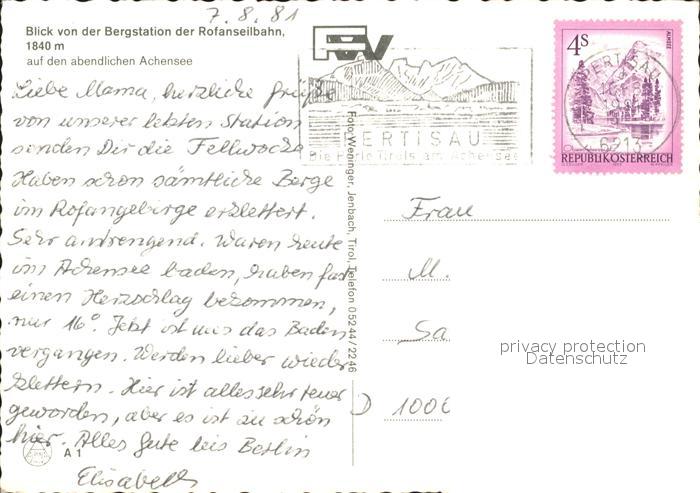 7.8.81
Blick von der Bergstation der Rofanseilbahn,
1840 m
auf den abendlichen Achensee
Liebe Mama, herzliche Grüße
von unserer letzten Station
senden Dir die
Haben schon sämtliche Berge
im Rofangebirge erklettert.
Sehr anstrengend. Waren heute
im Achensee baden, haben fast
einen Herzschlag bekommen,
nur 16°. Jetzt ist uns das Baden
vergangen. Werden lieber wieder
klettern. Hier ist alles sehr teuer
geworden, aber es ist so schön
hier. Alles Gute bis Berlin
Elisabeth
A 1
Foto: Weninger, Jenbach, Tirol, Telefon 05244/2246
PERTISAU
Die Perle Tirols am Achensee
4S
ALMSEE
PERTISAU
6213
REPUBLIK ÖSTERREICH
Frau
M.
Sa
D 1000
privacy protection
Datenschutz